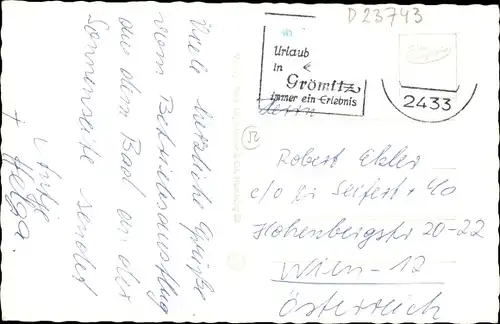 D23743
Urlaub
in
Grömitz
immer ein Erlebnis
2433
Viele herzliche Grüße
vom Betriebsausflug
aus dem Bad an der
Sonnenseite sendet
Antje
+ Helga.
Herrn
Robert Ekler
c/o bei Seifert + Ko
Hohenbergstr 20-22
Wien-12
Österreich